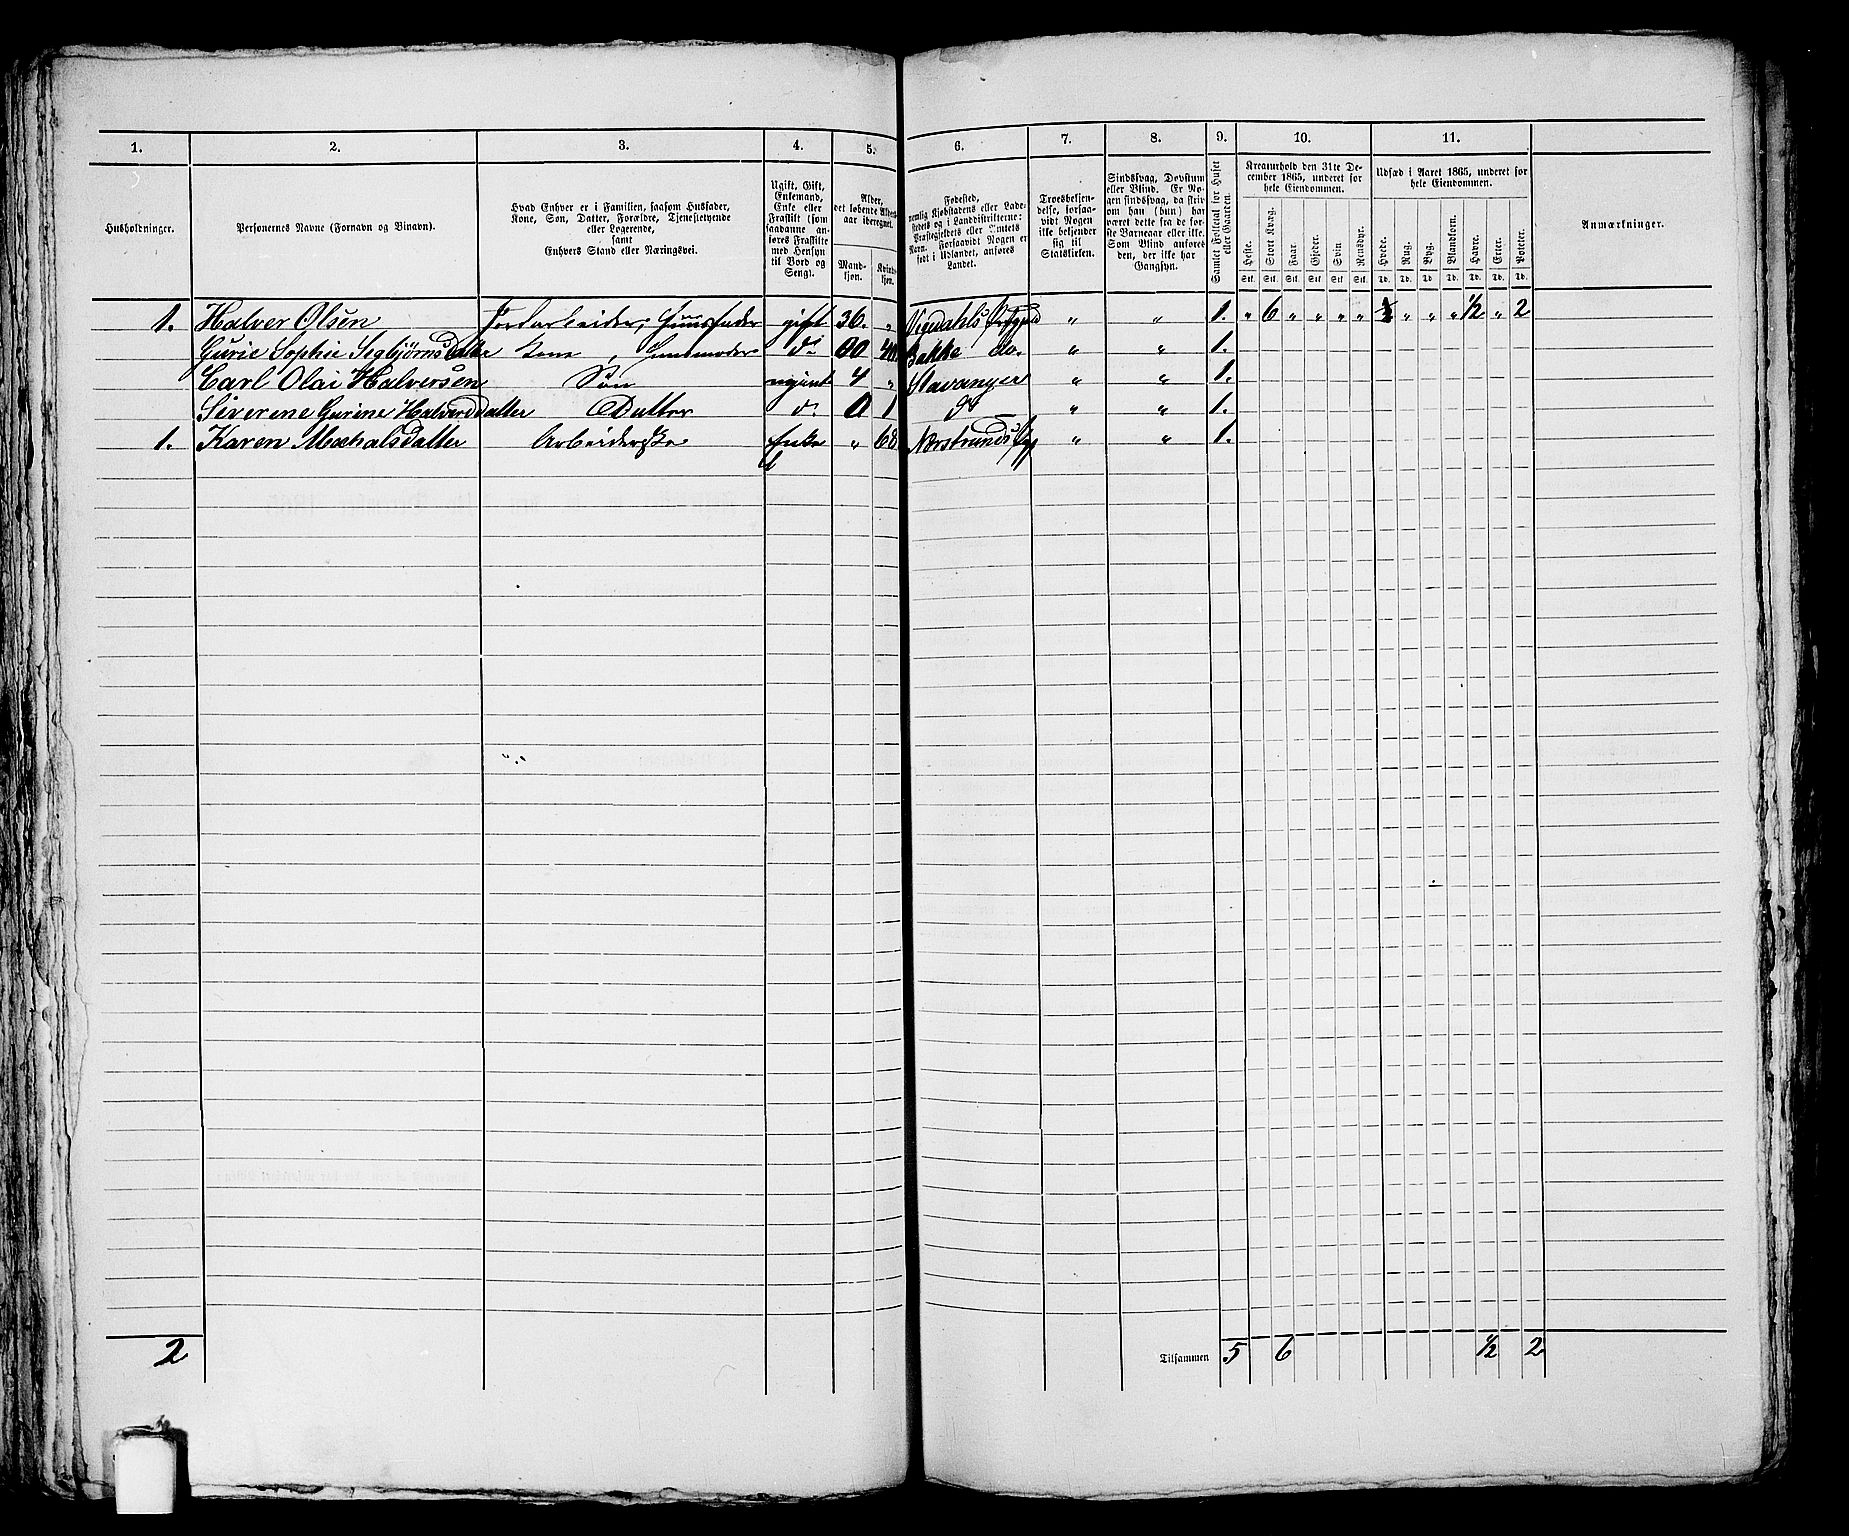 1. 2. 3. 4. 5. 6. 7. 8. 9. 10. 11.
Husholdninger.
Personernes Navne (Fornavn og Binavn).
Hvad Enhver er i Familien, saasom Husfader,
Kone, Søn, Datter, Forældre, Tjenestetyende
eller Logerende,
samt
Enhvers Stand eller Næringsvei.
Ugift, Gift,
Enkemand,
Enke eller
Fraskilt (som
saadanne an-
føres Fraskilte
med Hensyn
til Bord og
Seng).
Alder,
det løbende Alders-
aar iberegnet.
Mand-
kjøn.
Kvind-
kjøn.
Fødested,
nemlig Kjøbstadens eller Lade-
stedets og i Landdistrikterne:
Præstegjeldets eller Sognets
Navn. Forsaavidt Nogen er
født i Udlandet, anføres
Landet.
Troesbekjen-
delse, forsaa-
vidt Nogen
ikke bekjender
sig til
Statskirken.
Sindssvag, Døvstum
eller Blind. Er No-
gen sindssvag, da skriv
om han (hun) har
været dette fra de for-
ste Barneaar eller ikke.
Som Blind anføres
den, der ikke har
Gangsyn.
Samlet Folketal for Huset
eller Gaarden.
Kreaturhold den 31te De-
cember 1865, underet for
hele Eiendommen.
Heste. Stort Kvæg. Faar. Gjeder. Svin Rensdyr.
Stk. Stk. Stk. Stk. Stk Stk.
Udsæd i Aaret 1865, underet for
hele Eiendommen.
Hvede. Rug. Byg. Blandkorn. Havre. Erter. Poteter.
Td. Td. Td Td. Td. Td. Td.
Anmærkninger.
1. Halver Olsen Jordarbeider, Huusfader gift 36. „ Præstgjeld „ „ 1. „ 6 „ „ „ „ „ „ „ ½ „ 2
Gurie Sophie Kone, Huusmoder do 00 40 Bakke do. „ „ 1.
Carl Olai Halversen Søn ugivt 4 „ Stavanger „ „ 1.
Severene Gurine Halversdatter Datter do 0 1 do „ „ 1.
1. Karen Arbeiderske Enke „ 68 „ „ 1.
2 Tilsammen 5 6 ½ 2